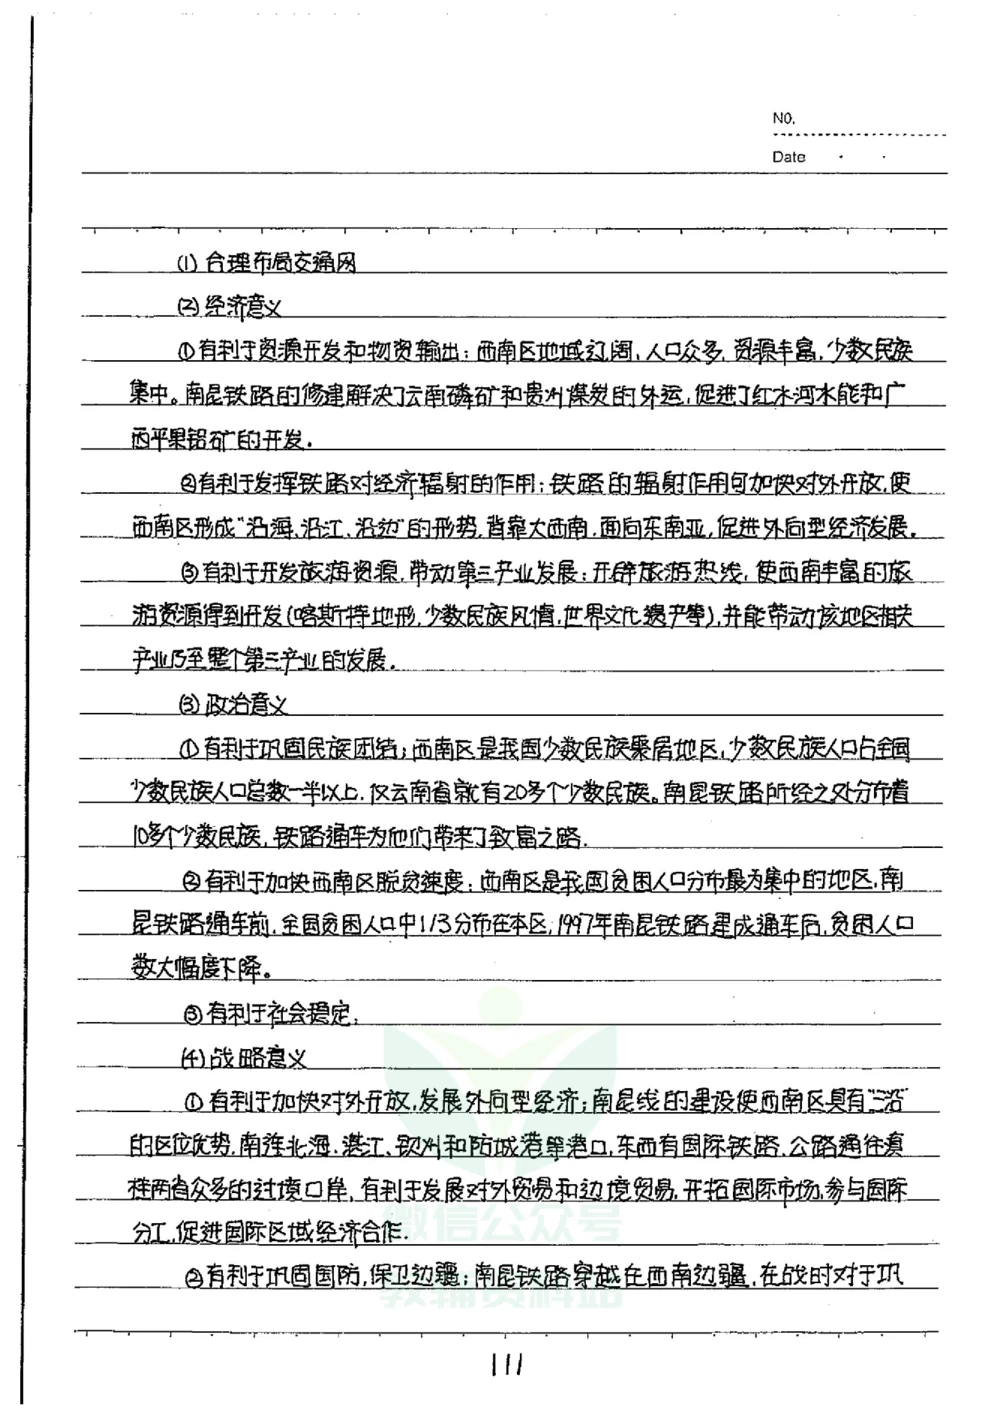 NO.
Date
(1) 合理布局交通网
(2) 经济意义
①有利于资源开发和物资输出:西南区地域辽阔,人口众多,资源丰富,少数民族
集中。南昆铁路的修建解决了云南磷矿和贵州煤炭的外运,促进了红水河水能和广
西平果铝矿的开发.
②有利于发挥铁路对经济辐射的作用:铁路的辐射作用可加快对外开放,使
西南区形成“沿海、沿江、沿边”的形势,背靠大西南,面向东南亚,促进外向型经济发展.
③有利于开发旅游资源,带动第三产业发展:开辟旅游热线,使西南丰富的旅
游资源得到开发(喀斯特地形,少数民族风情,世界文化遗产等),并能带动该地区相关
产业乃至整个第三产业的发展.
(3) 政治意义
①有利于巩固民族团结:西南区是我国少数民族聚居地区,少数民族人口占全国
少数民族人口总数一半以上,仅云南省就有20多个少数民族。南昆铁路所经之处分布着
10多个少数民族,铁路通车为他们带来了致富之路.
②有利于加快西南区脱贫速度:西南区是我国贫困人口分布最为集中的地区,南
昆铁路通车前,全国贫困人口中1/3分布在本区,1997年南昆铁路建成通车后,贫困人口
数大幅度下降。
③有利于社会稳定.
(4) 战略意义
①有利于加快对外开放,发展外向型经济:南昆线的建设使西南区具有“三沿”
的区位优势,南连北海、湛江、钦州和防城港等港口,东西有国际铁路、公路通往滇
桂两省众多的过境口岸,有利于发展对外贸易和边境贸易,开拓国际市场,参与国际
分工,促进国际区域经济合作.
②有利于巩固国防,保卫边疆:南昆铁路穿越在西南边疆,在战时对于巩
微信公众号
教辅资料站
111